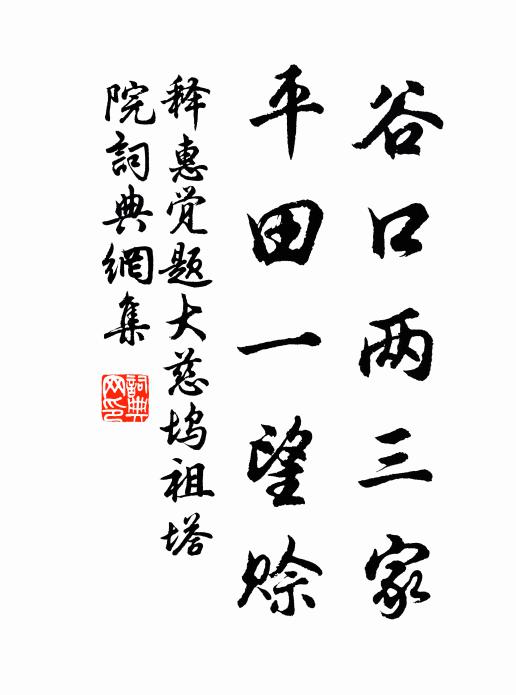 谷口两三家
平田一望赊
释惠觉题大慈坞祖塔
院詞典網集
詞典网印